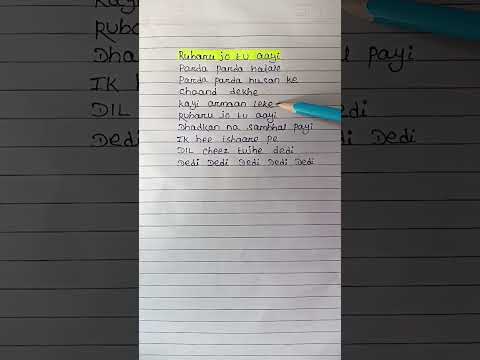 Rubaru jo tu aayi
Parda parda hatale
Parda parda husan ke
Chaand dekhe
kayi armaan leke
Rubaru jo tu aayi
Dhadkan na sambhal payi
IK hee ishaare pe
DIL cheez tujhe dedi
Dedi Dedi Dedi Dedi Dedi